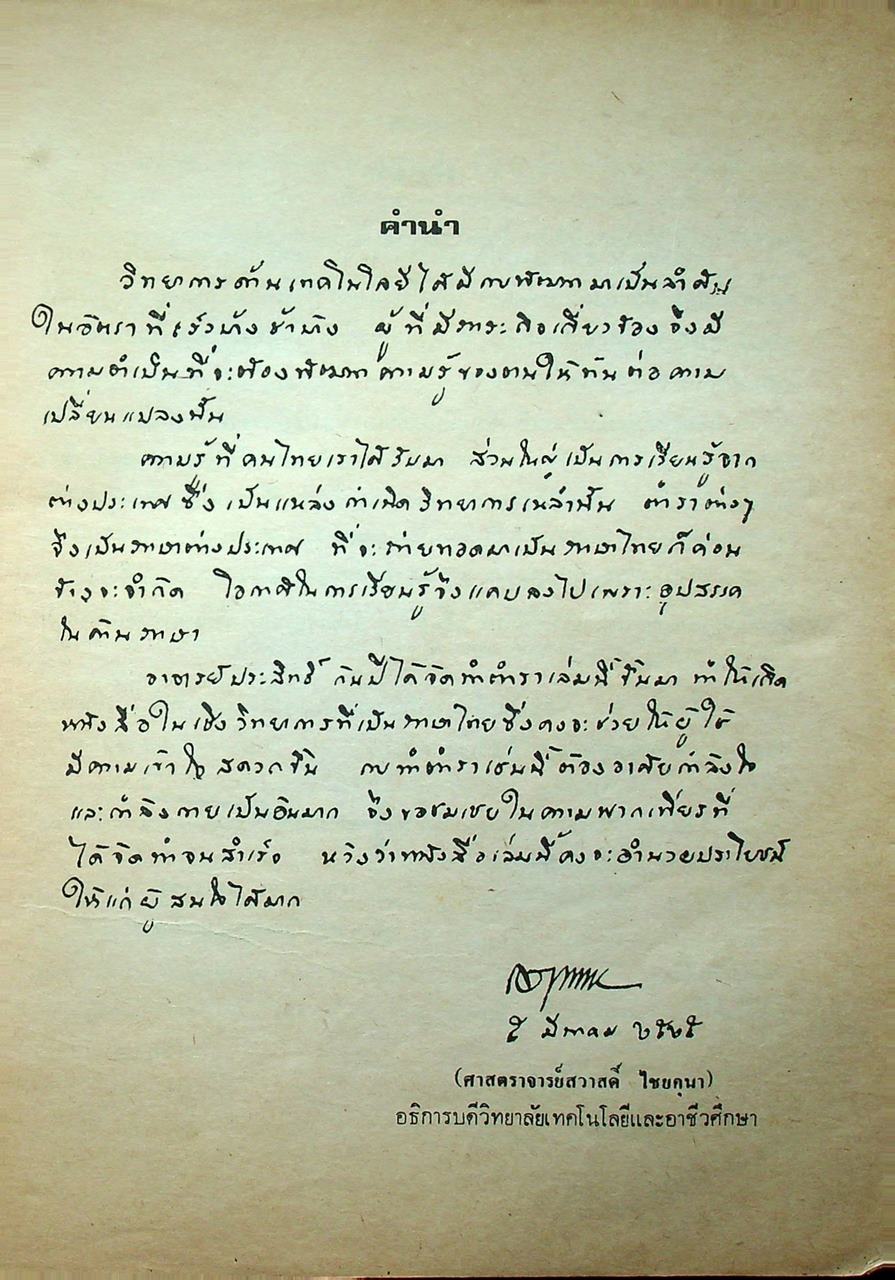 คำนำ
วิทยาการด้านเทคโนโลยีได้มีการพัฒนามาเป็นลำดับ
ในอัตราที่เร็วบ้างช้าบ้าง ผู้ที่มีภาระกิจเกี่ยวข้องจึงมี
ความจำเป็นที่จะต้องพัฒนาความรู้ของตนให้ทันต่อความ
เปลี่ยนแปลงนั้น
ความรู้ที่คนไทยเราได้รับมา ส่วนใหญ่เป็นการเรียนรู้จาก
ต่างประเทศซึ่งเป็นแหล่งกำเนิดวิทยาการเหล่านั้น ตำราต่างๆ
จึงเป็นภาษาต่างประเทศ ที่จะถ่ายทอดมาเป็นภาษาไทยก็ค่อน
ข้างจะจำกัด โอกาสในการเรียนรู้จึงแคบลงไปเพราะอุปสรรค
ในด้านภาษา
อาจารย์ประสิทธิ์ กันปี ได้จัดทำตำราเล่มนี้ขึ้นมา ทำให้เกิด
หนังสือในเชิงวิทยาการที่เป็นภาษาไทยซึ่งคงจะช่วยให้ผู้ใช้
มีความเข้าใจสดวกขึ้น การทำตำราเช่นนี้ต้องอาศัยกำลังใจ
และกำลังกายเป็นอันมาก จึงขอชมเชยในความพากเพียรที่
ได้จัดทำจนสำเร็จ หวังว่าหนังสือเล่มนี้คงจะอำนวยประโยชน์
ให้แก่ผู้สนใจได้มาก
๕ มีนาคม ๒๕๒๕
(ศาสตราจารย์สวาสดิ์ ไชยคุนา)
อธิการบดีวิทยาลัยเทคโนโลยีและอาชีวศึกษา